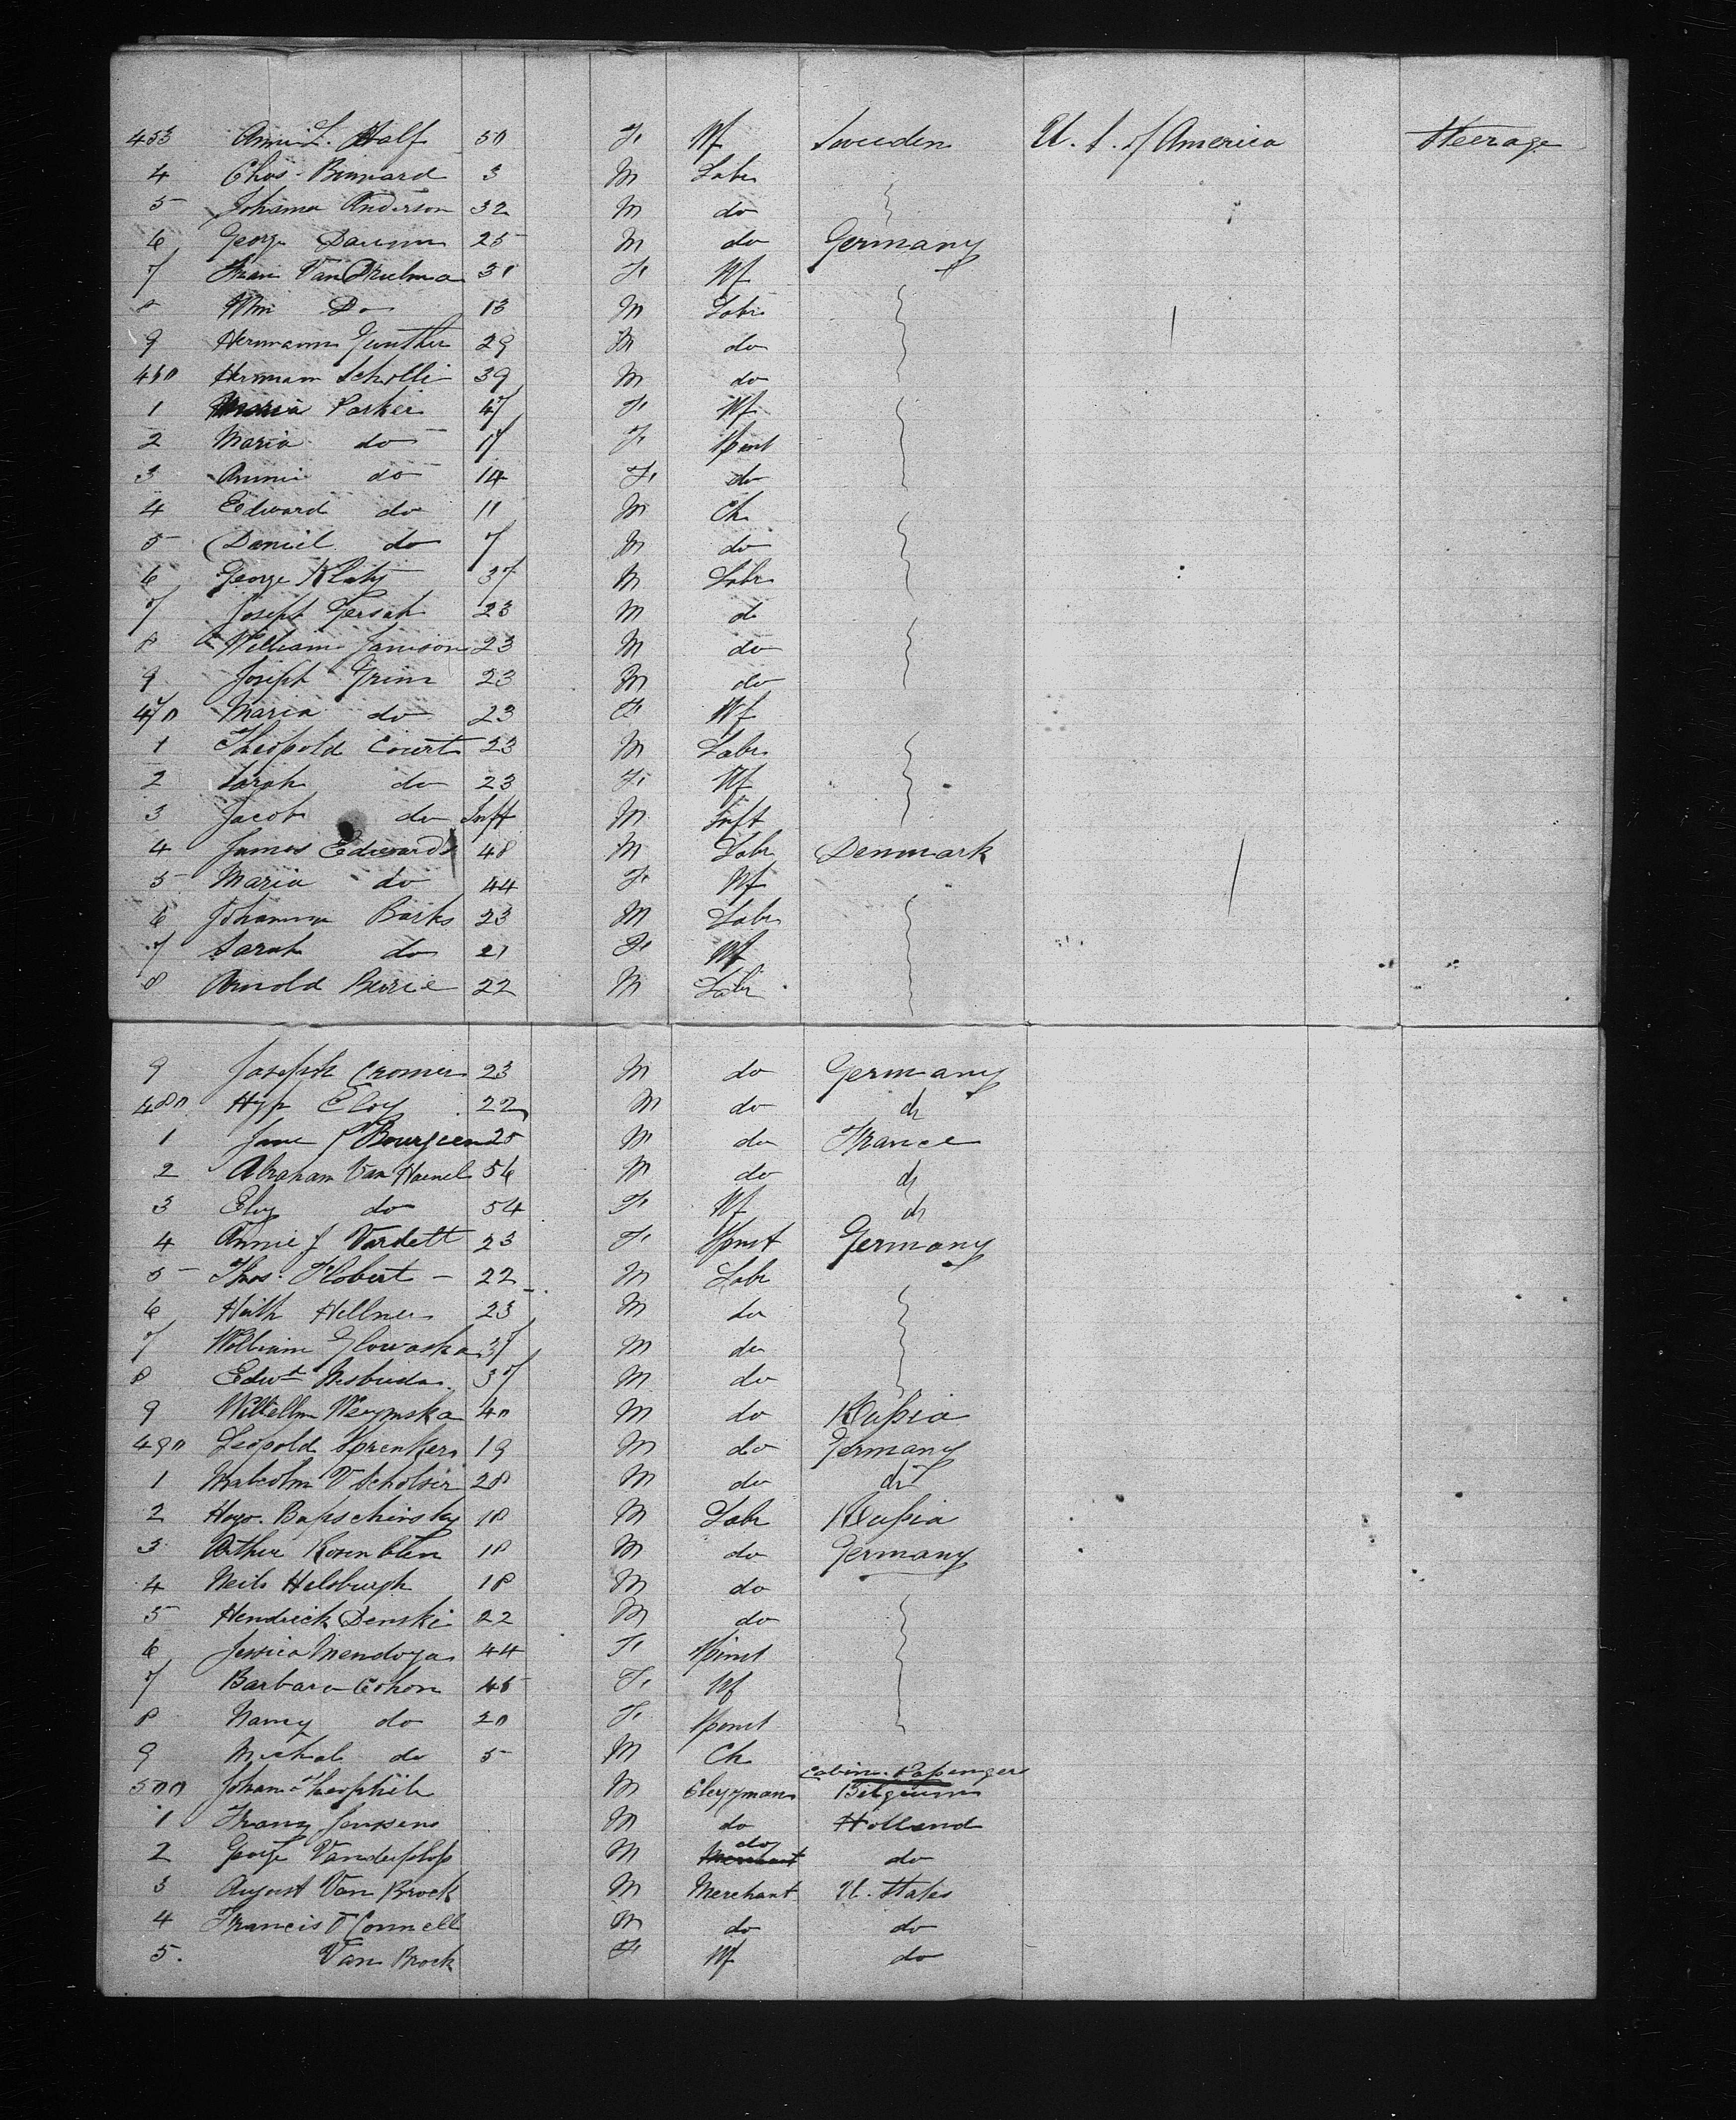 453 Annie L. Half 50 F. Wf Sweden U. S. of America Steerage
4 Chas. Binnard 3 M Labr
5 Johanna Anderson 32 M do
6 George 25 M do Germany
7 Van 31 F. Wf
8 Wm Do 13 M Labr
9 Hermann Gunther 29 M do
460 Herman Scholli 39 M do
1 Maria Parker 47 F. Wf
2 Maria do 17 F. Spinst
3 Annie do 14 F. do
4 Edward do 11 M Ch
5 Daniel do 7 M do
6 George Klatz 37 M Labr
7 Joseph Gersah 23 M do
8 William Jamison 23 M do
9 Joseph Grim 23 M do
470 Maria do 23 F. Wf
1 Theopold Courts 23 M Labr
2 Sarah do 23 F. Wf
3 Jacob do Inft M Inft
4 James Edwards 48 M Labr Denmark
5 Maria do 44 F. Wf
6 Johanna Barks 23 M Labr
7 Sarah do 21 F. Wf
8 Arnold Berrie 22 M Labr
9 Joseph Cromer 23 M do Germany
480 Hyp Eloy 22 M do do
1 Jane J Bourgeen 25 M do France
2 Abraham Van Haenel 56 M do do
3 Eloy do 54 F. Wf do
4 Annie J Vardett 23 F. Spinst Germany
5 Thos. Hobert 22 M Labr
6 Hillner 23 M do
7 William Glowaska 37 M do
8 Edwd 37 M do
9 Wilhelm Werynska 40 M do Russia
490 Leopold Sprenkers 19 M do Germany
1 Malcolm V Scholsir 28 M do do
2 Bapschinsky 18 M Labr Russia
3 Arthur Rosenblen 18 M do Germany
4 Neils Helsburgh 18 M do
5 Hendrick Denski 22 M do
6 Jessica Mendoza 44 F. Spinst
7 Barbara Cohon 45 F. Wf
8 Nancy do 20 F. Spinst
9 Michal do 5 M Ch
Cabin Passengers
500 Johan Theophile M Clergyman Belgium
1 Franz Janssens M do Holland
2 George M do do
3 August Van Brock M Merchant U. States
4 Francis O'Connell M do do
5. Van Brock F. Wf do